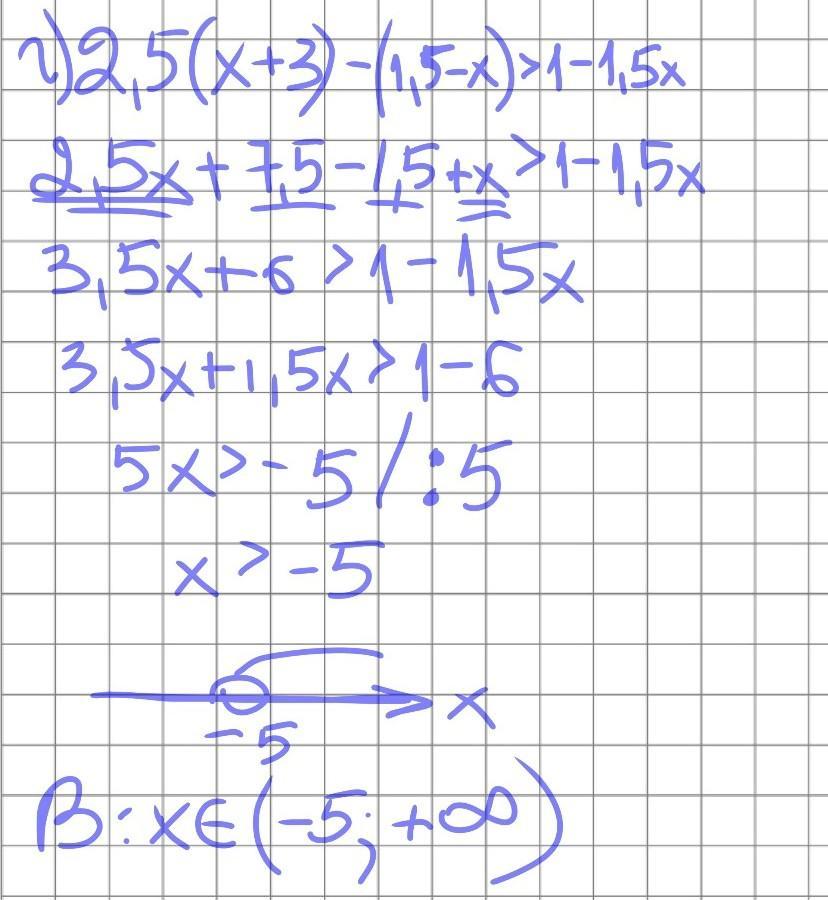 г) 2,5(x+3)-(1,5-x)>1-1,5x
2,5x+7,5-1,5+x>1-1,5x
3,5x+6>1-1,5x
3,5x+1,5x>1-6
5x>-5/:5
x>-5
x
-5
В: x∈(-5;+∞)